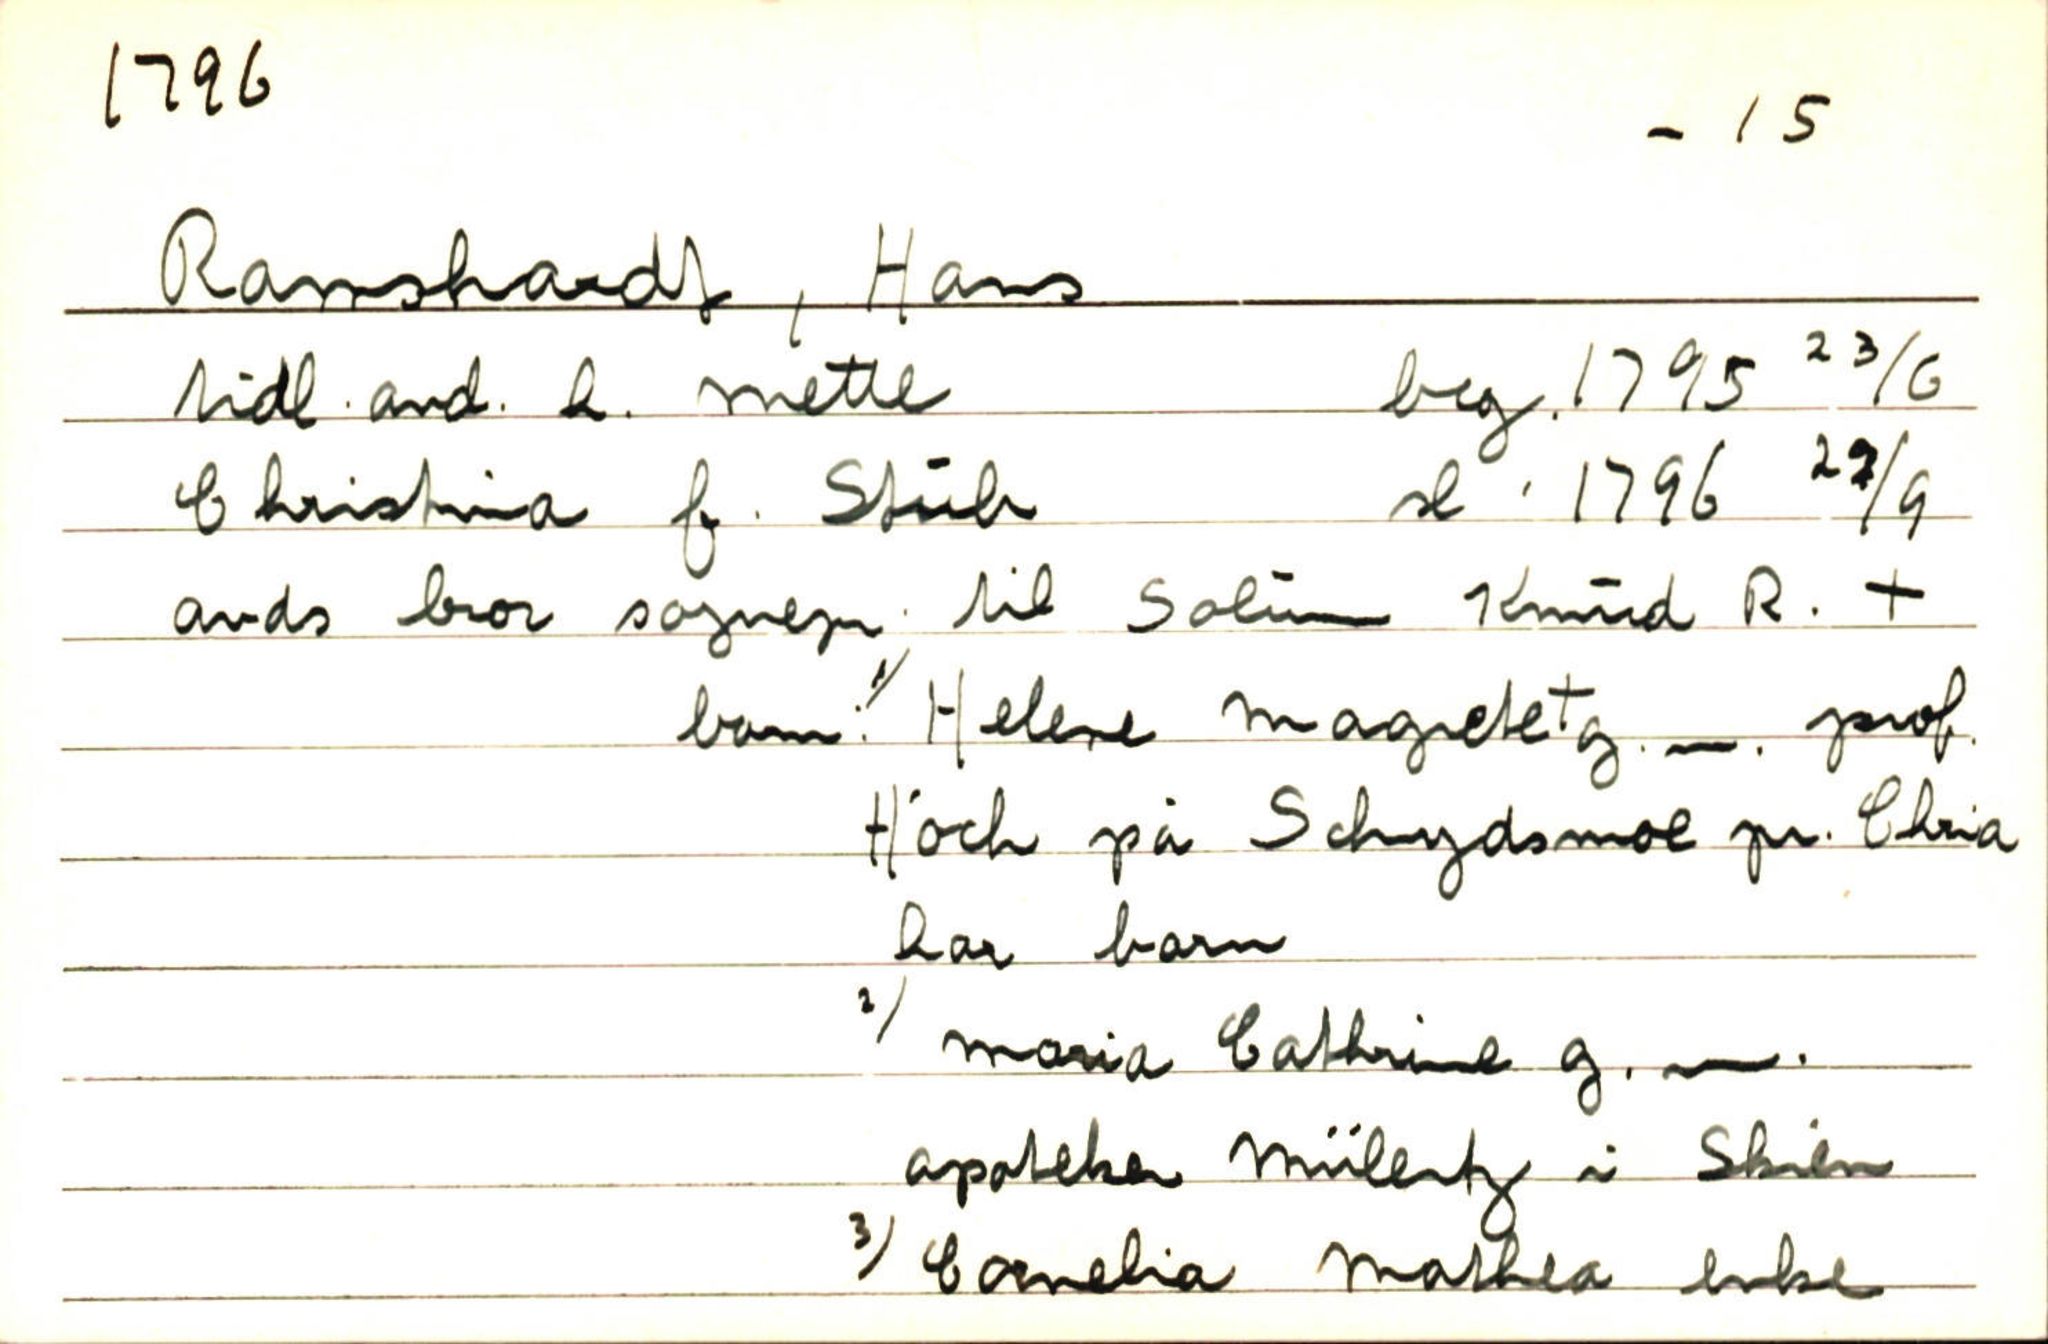 1796
- 15
Ramshardt, Hans
tidl. and. h. Mette beg. 1795 23/6
Christina f. Stub sl. 1796 22/9
avds bror sognepr. til Solum Knud R. +
barn: 1/ Helene Magrete + g. —. prof.
Höch på Schydsmoe pr. Chria
har barn
2/ Maria Cathrine g. —.
apoteker Mülertz i Skien
3/ Cornelia Mathea enke